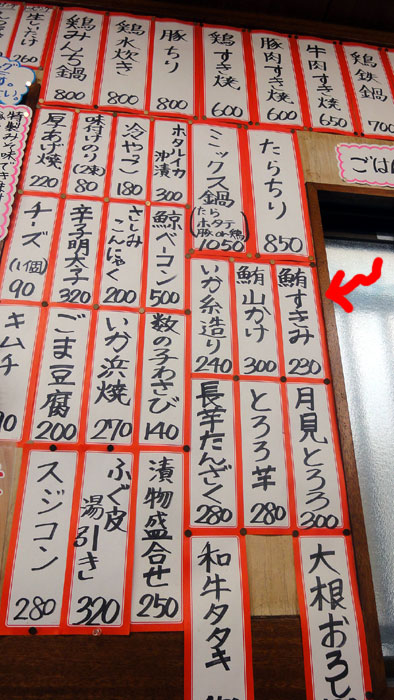 鶏鉄鍋
700
牛肉すき焼
650
豚肉すき焼
600
鶏すき焼
600
豚ちり
800
鶏水炊き
800
鶏みんち鍋
800
生しいたけ
260
ごは
たらちり
850
ミックス鍋
(たら
ホタテ
豚or鶏)
1050
ホタルイカ
沖漬
300
冷やっこ
180
味付けのり(2束)
80
厚あげ焼
220
鮪すきみ
230
鮪山かけ
300
いか糸造り
240
鯨ベーコン
500
さしみ
こんにゃく
200
辛子明太子
320
チーズ
(1個)
90
月見とろろ
300
とろろ芋
280
長芋たんざく
280
数の子わさび
140
いか浜焼
270
ごま豆腐
200
キムチ
90
漬物盛合せ
250
ふぐ皮
湯引き
320
スジコン
280
大根おろし
和牛タタキ